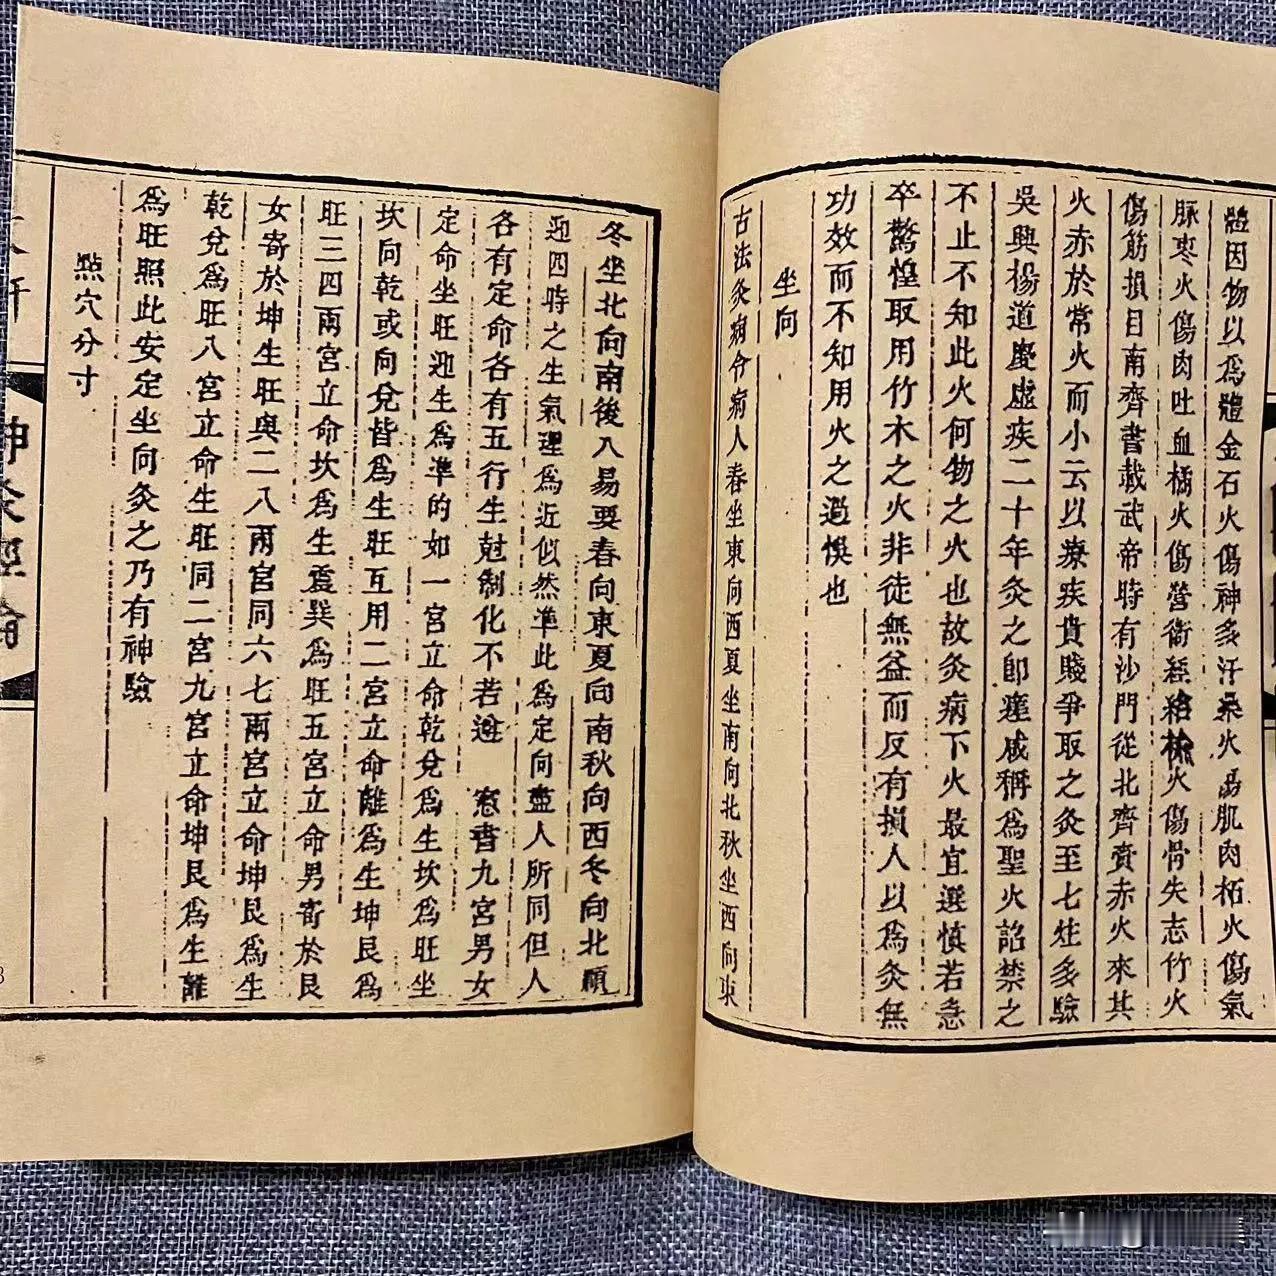 體因物以爲體金石火傷神多汗桑火傷肌肉柘火傷氣
脉棗火傷肉吐血橘火傷營衛經絡榆火傷骨失志竹火
傷筋損目南齊書載武帝時有沙門從北齊賫赤火來其
火赤於常火而小云以療疾貴賤爭取之灸至七炷多驗
吳興楊道慶虛疾二十年灸之即瘥咸稱爲聖火詔禁之
不止不知此火何物之火也故灸病下火最宜選慎若急
卒驚惶取用竹木之火非徒無益而反有損人以爲灸無
功效而不知用火之過悞也
坐向
古法灸病令病人春坐東向西夏坐南向北秋坐西向東
冬坐北向南後人易要春向東夏向南秋向西冬向北順
迎四時之生氣理爲近似然準此爲定向盡人所同但人
各有定命各有五行生尅制化不若遵憲書九宮男女
定命坐旺迎生爲準的如一宮立命乾兌爲生坎爲旺坐
坎向乾或向兌皆爲生旺互用二宮立命離爲生坤艮爲
旺三四兩宮立命坎爲生震巽爲旺五宮立命男寄於艮
女寄於坤生旺與二八兩宮同六七兩宮立命坤艮爲生
乾兌爲旺八宮立命生旺同二宮九宮立命坤艮爲生離
爲旺照此安定坐向灸之乃有神驗
點穴分寸
神灸經綸